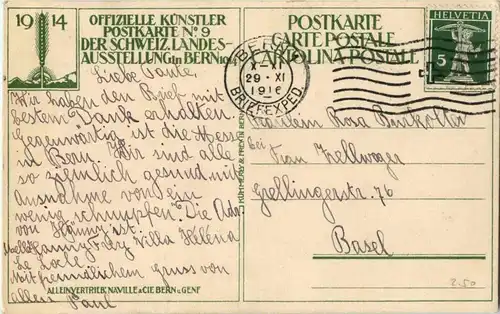 1914
OFFIZIELLE KÜNSTLER
POSTKARTE No 9
DER SCHWEIZ. LANDES-
AUSSTELLUNG in BERN 1914
Liebe Tante,
Wir haben den Brief mit
bestem Dank erhalten
Gegenwärtig ist die Messe
in Bern. Wir sind alle
so ziemlich gesund mit
Ausnahme von ein
wenig schnupfen. Die Adr.
von Fanny ist.
Fanny Villa Helena
Le Locle.
Mit freundlichem gruss von
allen Paul
ALLEINVERTRIEB: NAVILLE & CIE BERN u. GENF
KÜMMERLY & FREY BERN
POSTKARTE
CARTE POSTALE
CARTOLINA POSTALE
BERN
X-XI
29·XI
1916
BRIEFEXPED.
HELVETIA
5
Fräulein Rosa
bei Frau Zellweger
Grellingerstr. 76
Basel
2.50